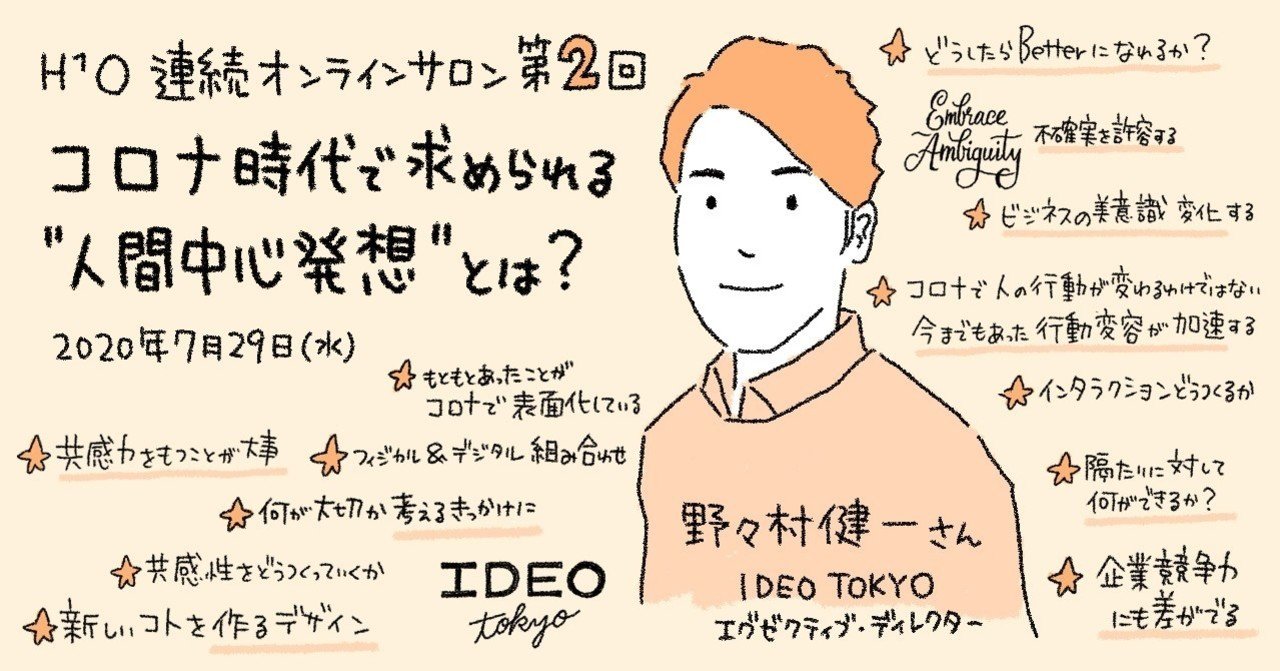 H¹O 連続オンラインサロン 第2回
コロナ時代で求められる
"人間中心発想"とは?
2020年7月29日(水)
もともとあったことが
コロナで表面化している
共感力をもつことが大事
フィジカル&デジタル 組み合わせ
何が大切か考えるきっかけに
共感性をどうつくっていくか
新しいコトを作るデザイン
IDEO
tokyo
野々村健一さん
IDEO TOKYO
エグゼクティブ・ディレクター
どうしたらBetterになれるか?
Embrace
Ambiguity
不確実を許容する
ビジネスの美意識 変化する
コロナで人の行動が変わるわけではない
今までもあった行動変容が加速する
インタラクションどうつくるか
隔たりに対して
何ができるか?
企業競争力
にも差がでる